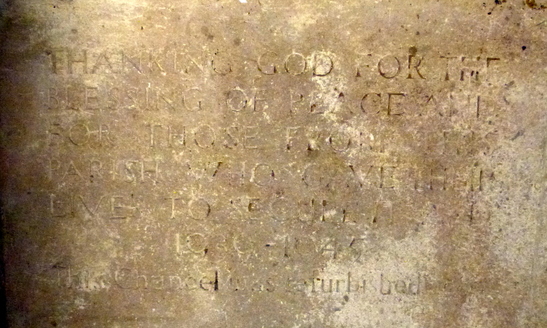 THANKING GOD FOR THE
BLESSING OF PEACE AND
FOR THOSE FROM THIS
PARISH WHO GAVE THEIR
LIVES TO SECURE IT
1939-1945
This Chancel was refurbished